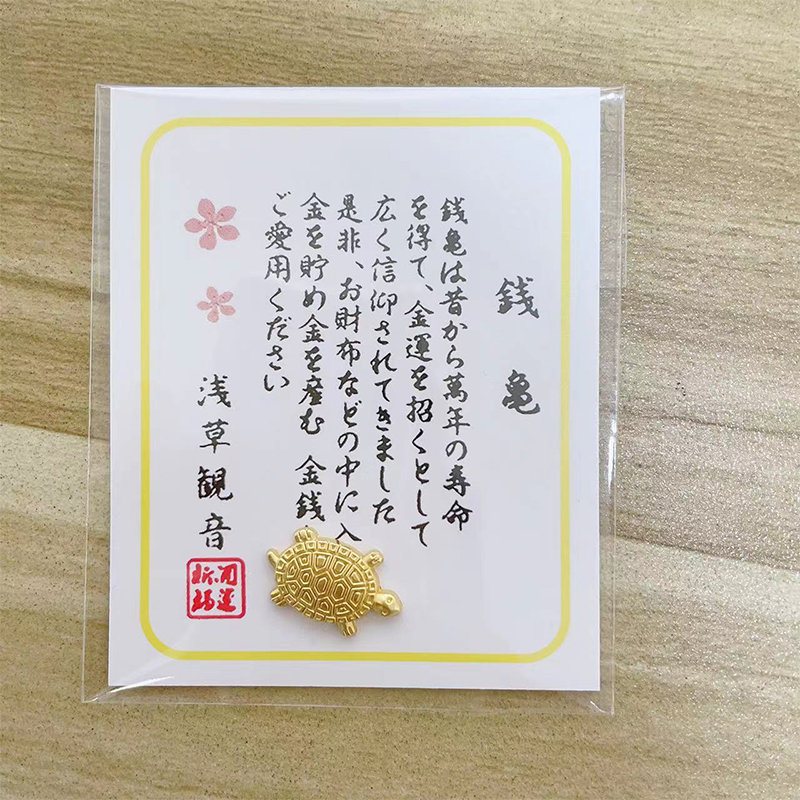 銭亀
銭亀は昔から萬年の寿命
を得て、金運を招くとして
広く信仰されてきました
是非、お財布などの中に入
金を貯め金を産む 金銭
ご愛用ください
浅草観音
開運